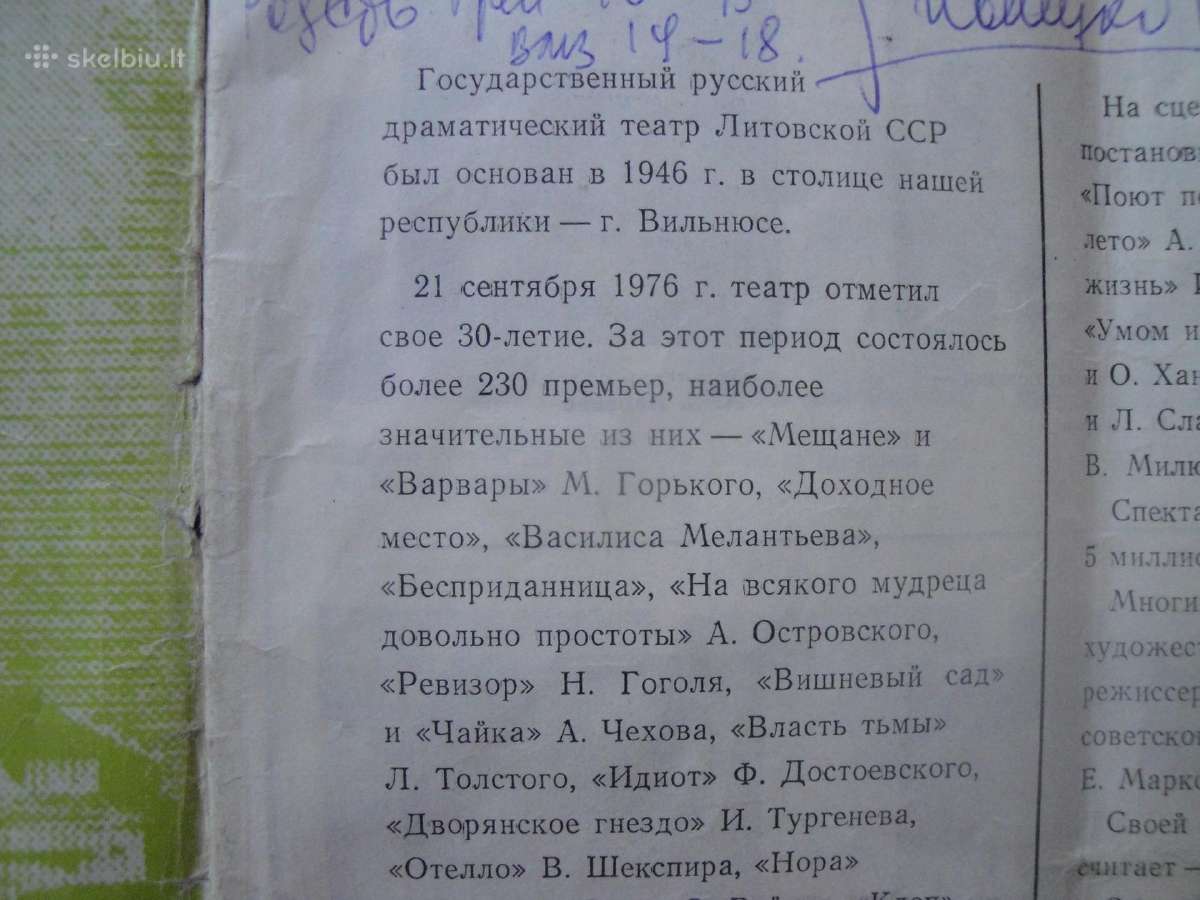 skelbiu.lt
14-18.
Государственный русский
драматический театр Литовской ССР
был основан в 1946 г. в столице нашей
республики — г. Вильнюсе.
21 сентября 1976 г. театр отметил
свое 30-летие. За этот период состоялось
более 230 премьер, наиболее
значительные из них — «Мещане» и
«Варвары» М. Горького, «Доходное
место», «Василиса Мелантьева»,
«Бесприданница», «На всякого мудреца
довольно простоты» А. Островского,
«Ревизор» Н. Гоголя, «Вишневый сад»
и «Чайка» А. Чехова, «Власть тьмы»
Л. Толстого, «Идиот» Ф. Достоевского,
«Дворянское гнездо» И. Тургенева,
«Отелло» В. Шекспира, «Нора»
На
«Поют
лето» А.
жизнь»
«Умом и
и О.
и Л.
В.
5
Е.
Своей
считает —